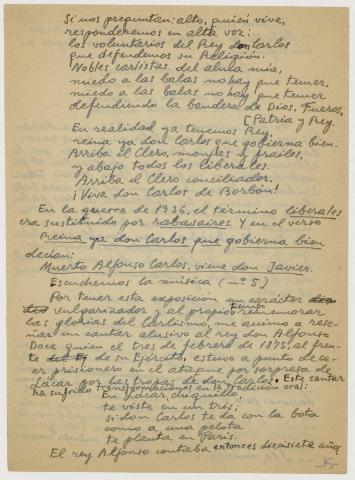 Si nos preguntan: alto, quien vive,
responderemos en alta voz:
los voluntarios del Rey don Carlos
que defendemos su Religión.
Nobles carlistas del alma mía,
miedo a las balas no hay que temer,
miedo a las balas no hay que temer
defendiendo la bandera de Dios, Fueros,
[Patria y Rey.
En realidad ya tenemos Rey:
reina ya don Carlos que gobierna bien.
Arriba el Clero, monjas y frailes,
y abajo todos los liberales.
Arriba el Clero conciliador.
¡Viva don Carlos de Borbón!
En la guerra de 1936, el término liberales
era sustituido por rabasaires. Y en el verso
Reina ya don Carlos que gobierna bien
decían:
Muerto Alfonso Carlos, viene don Javier.
Escuchemos la música (nº 5)
Por tener esta exposición un carácter
vulgarizador y al propio tiempo rememorar
las glorias del Carlismo, me animo a rese-
ñar un cantar alusivo al rey don Alfonso
Doce quien el tres de febrero de 1875, al fren-
te de su Ejército, estuvo a punto de ca-
er prisionero en el ataque por sorpresa de
Lácar por las tropas de don Carlos. Este cantar
ha sufrido transformaciones en la tradición oral:
En Lácar, chiquillo,
te viste en un tris;
si don Carlos te da con la bota
como a una pelota
te planta en París.
El rey Alfonso contaba entonces diecisiete años
-15-